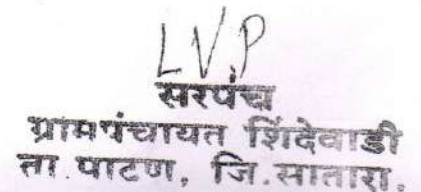 LVP
सरपंच
ग्रामपंचायत शिंदेवाडी
ता.पाटण, जि.सातारा.